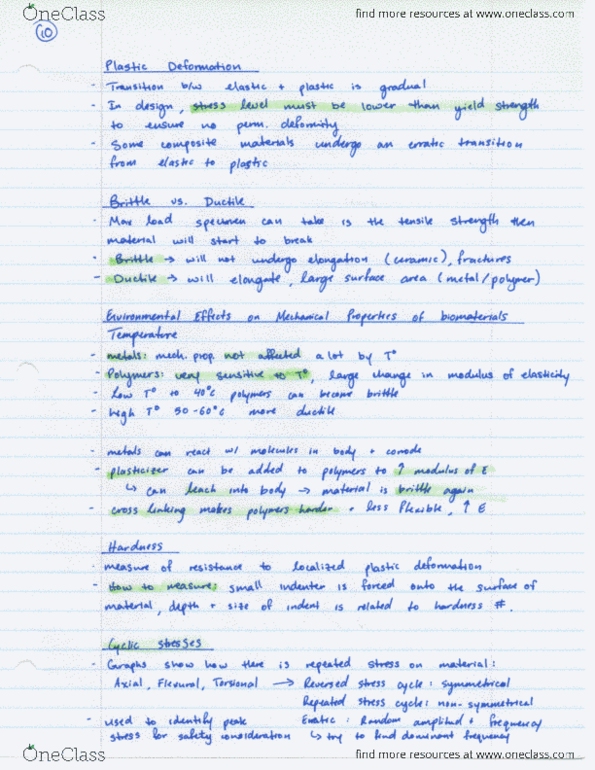 OneClass
find more resources at www.oneclass.com
10
Plastic Deformation
- Transition b/w elastic + plastic is gradual
- In design, stress level must be lower than yield strength
to ensure no perm. deformity
- Some composite materials undergo an erratic transition
from elastic to plastic
Brittle vs. Ductile
- Max load specimen can take is the tensile strength then
material will start to break
- Brittle → will not undergo elongation (ceramic), fractures
- Ductile → will elongate, large surface area (metal/polymer)
Environmental Effects on Mechanical Properties of biomaterials
Temperature
- metals: mech. prop. not affected a lot by T°
- Polymers: very sensitive to T°, large change in modulus of elasticity
- low T° to 40°C polymers can become brittle
- high T° 50-60°C more ductile
- metals can react w/ molecules in body + corrode
- plasticizer can be added to polymers to ↑ modulus of E
↳ can leach into body → material is brittle again
- cross linking makes polymers harder + less flexible, ↑ E
Hardness
- measure of resistance to localized plastic deformation
- How to measure: small indenter is forced onto the surface of
material, depth + size of indent is related to hardness #.
Cyclic stresses
- Graphs show how there is repeated stress on material:
Axial, Flexural, Torsional → Reversed stress cycle: symmetrical
Repeated stress cycle: non-symmetrical
- used to identify peak Erratic: Random amplitud + frequency
stress for safety consideration ↳ try to find dominant frequency
OneClass
find more resources at www.oneclass.com